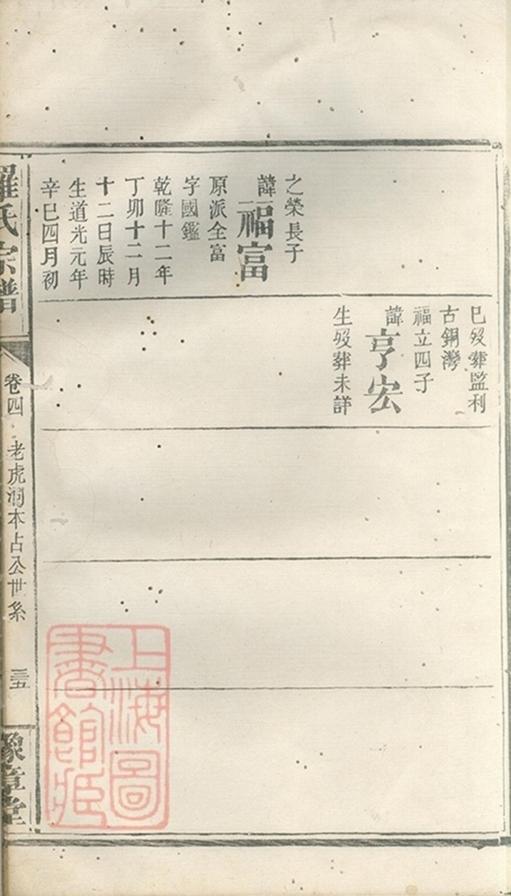 之榮長子
諱福富
原派全富
字國鑑
乾隆十二年
丁卯十二月
十二日辰時
生道光元年
辛巳四月初
巳殁葬監利
古銅灣
福立四子
諱亨宏
生殁葬未詳
羅氏宗譜
卷四
老虎洞本占公世系
三五
豫章堂
上海圖
書館藏